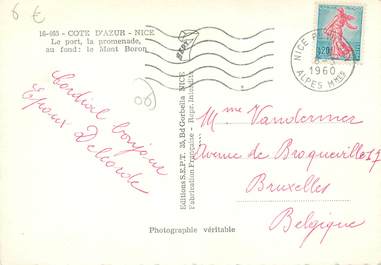 6 €
16-865 - COTE D'AZUR - NICE
Le port, la promenade,
au fond: le Mont Boron
06
Cordial bonjour
Epoux Delcorde
Editions S.E.P.T. 35, Bd Gorbella NICE
Fabrication Française - Repr. Interdite
SEPT
NICE
1960
ALPES MMES
0,20
Mme Vandermer
Avenue de Broqueville 17
Bruxelles
Belgique
Photographie véritable